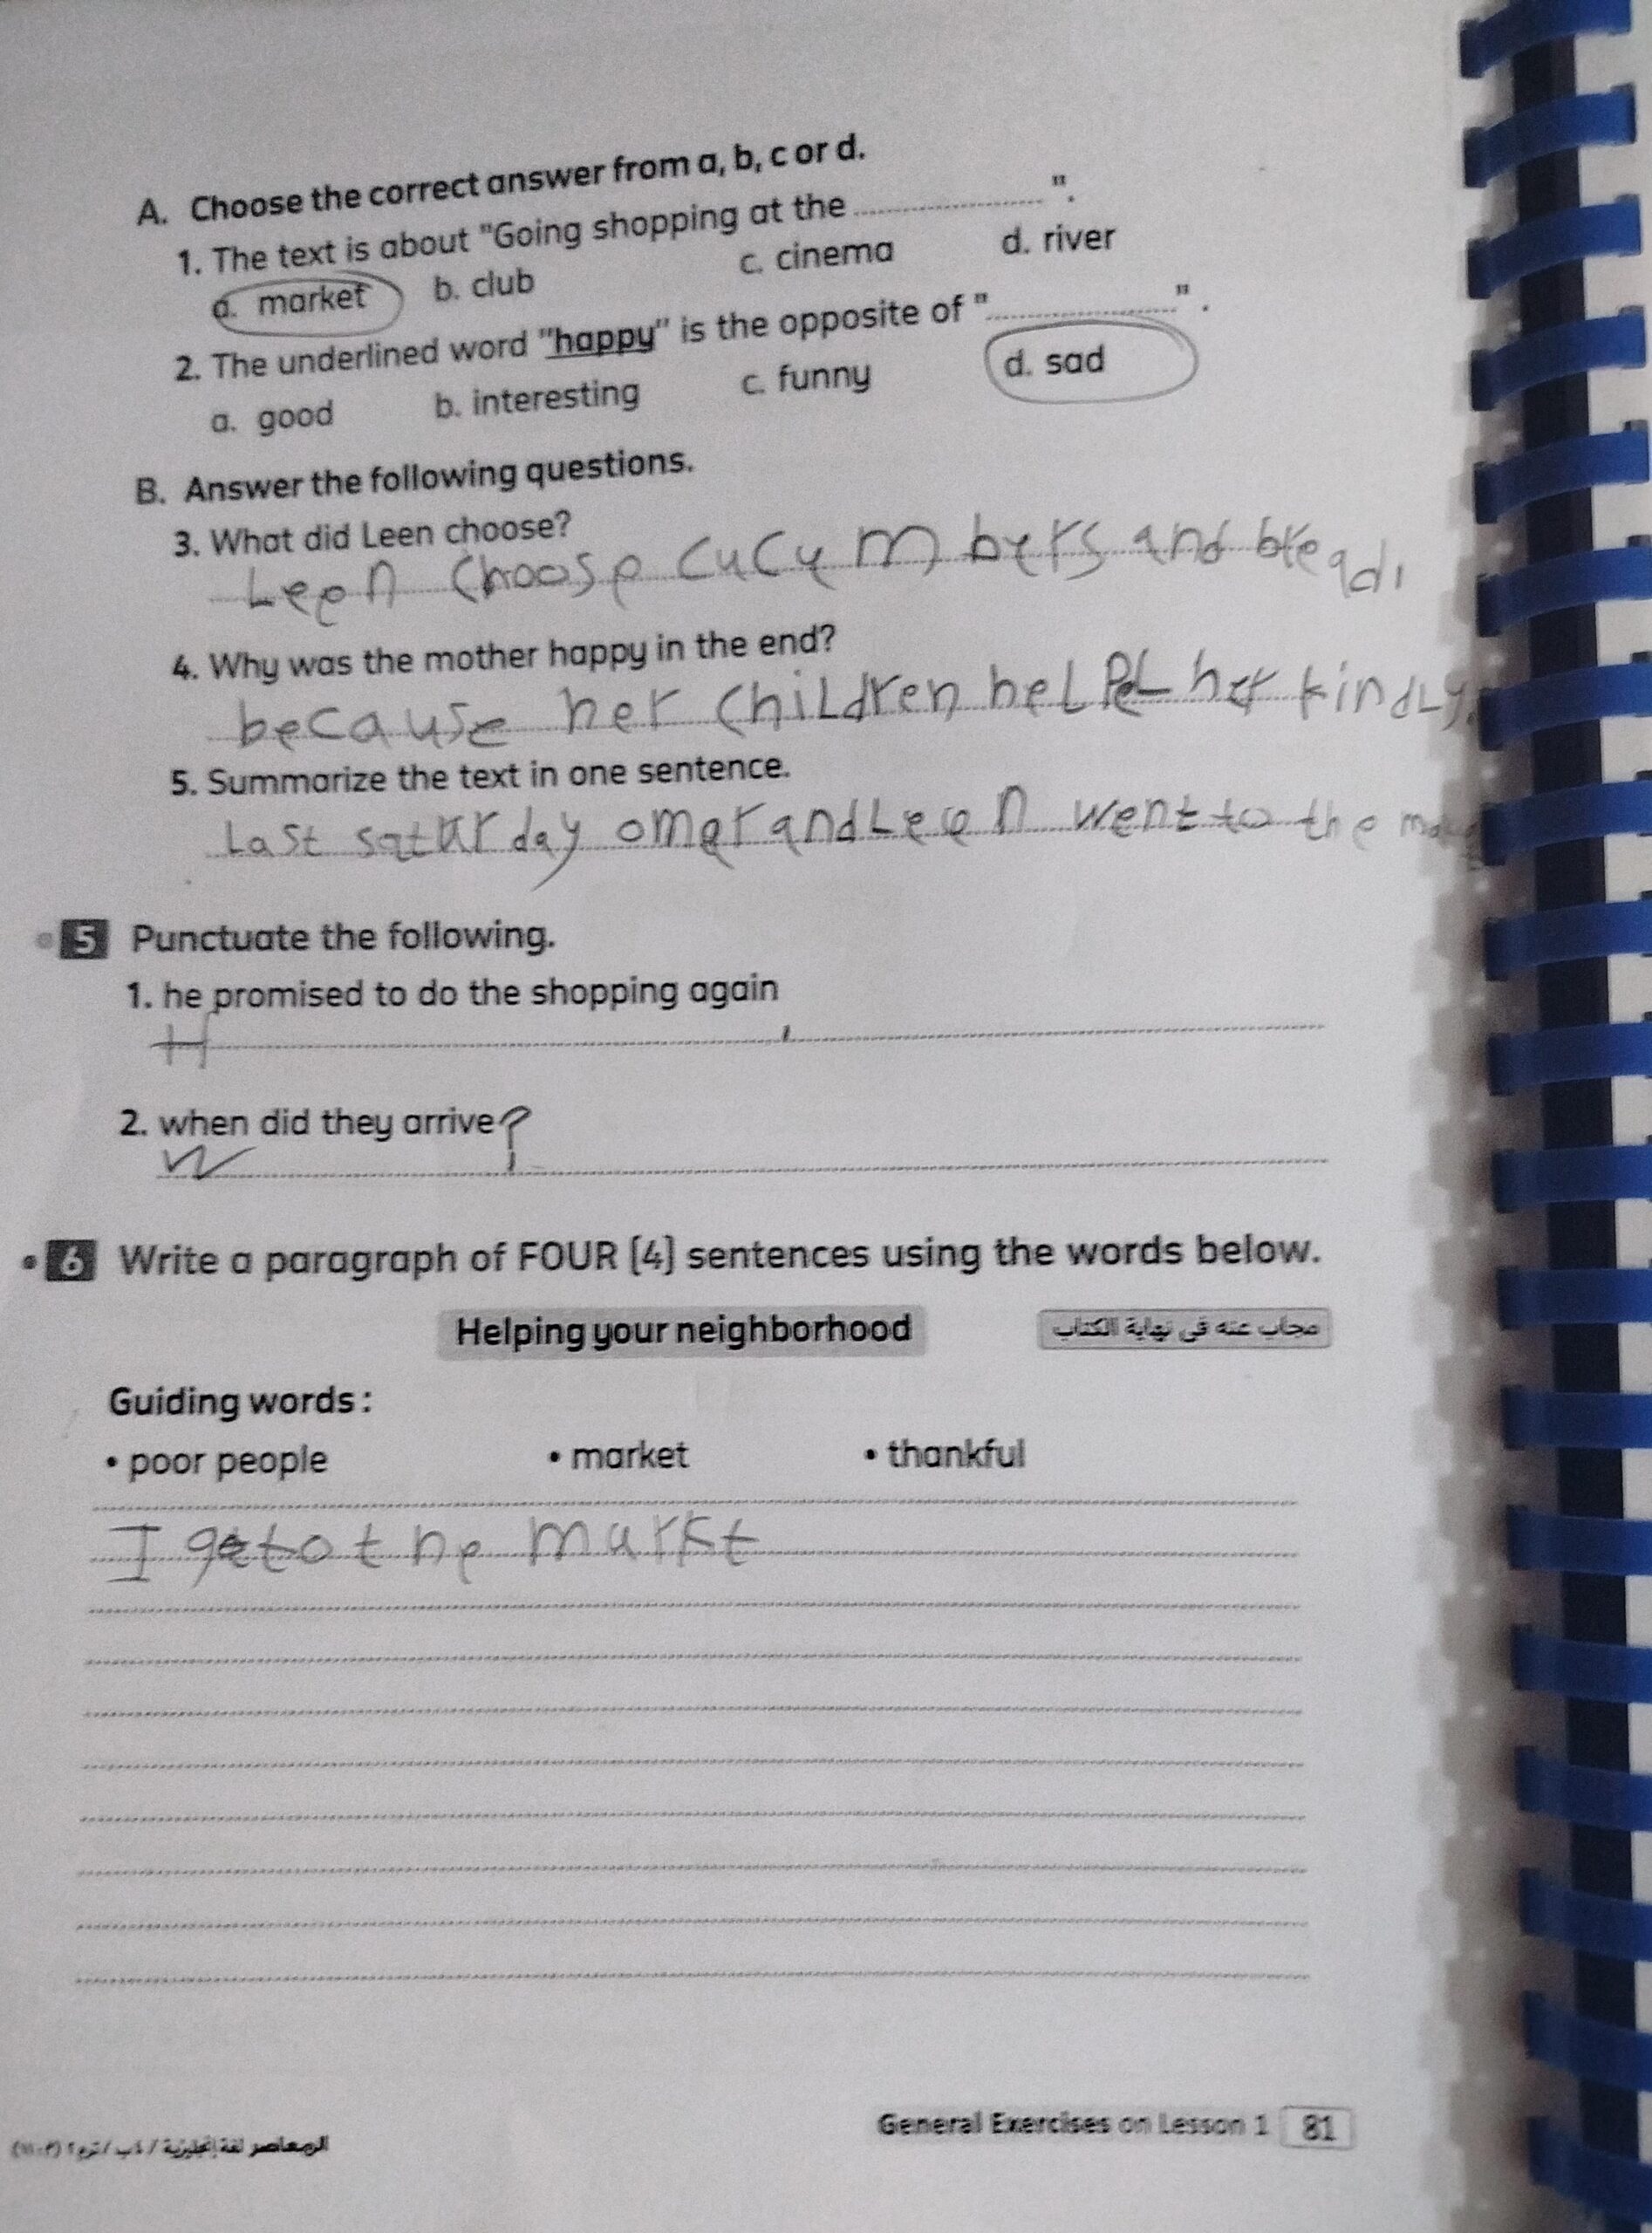 A. Choose the correct answer from a, b, c or d.
1. The text is about "Going shopping at the ............ ".
a. market b. club c. cinema d. river
2. The underlined word "happy" is the opposite of "............" .
a. good b. interesting c. funny d. sad
B. Answer the following questions.
3. What did Leen choose?
Leen choose cucumbers and bread.
4. Why was the mother happy in the end?
because her children help her kindly.
5. Summarize the text in one sentence.
Last saturday omar and Leen went to the
5 Punctuate the following.
1. he promised to do the shopping again
H .
2. when did they arrive?
W
6 Write a paragraph of FOUR (4) sentences using the words below.
Helping your neighborhood مجاب عنه فى نهاية الكتاب
Guiding words :
• poor people • market • thankful
I to the markt
General Exercises on Lesson 1 81
المعاصر لغة إنجليزية